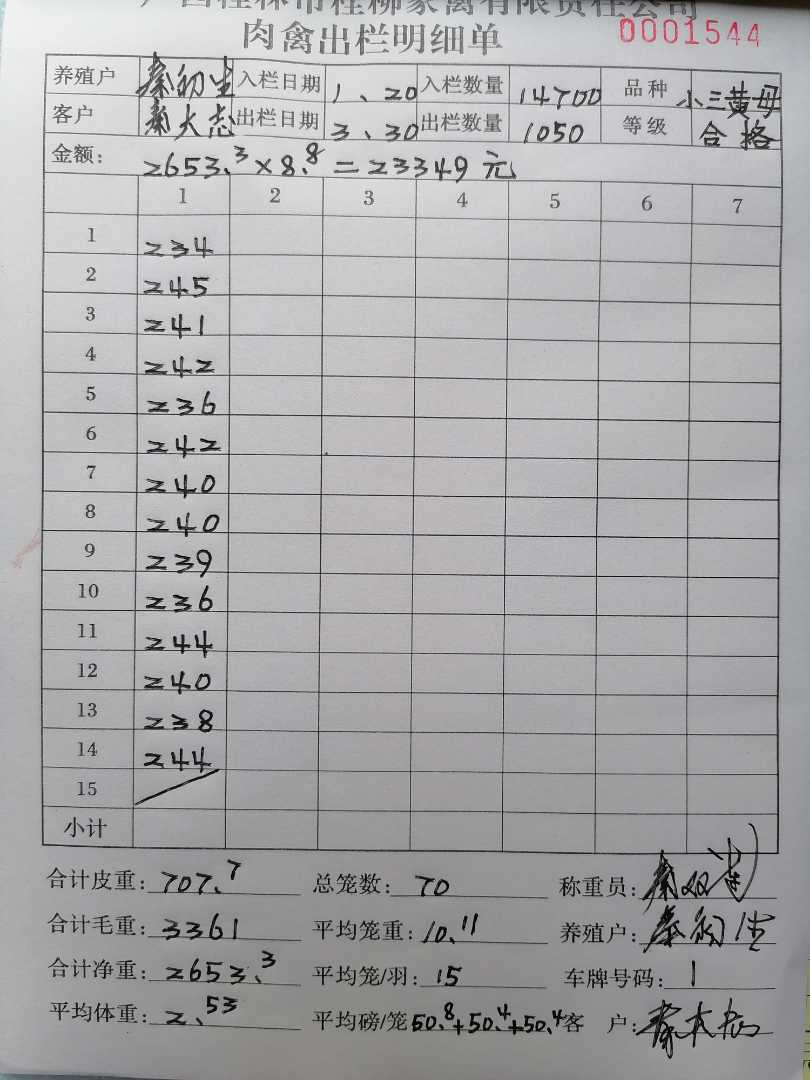 广西桂林市桂柳家禽有限责任公司
肉禽出栏明细单 0001544
养殖户 秦初生 入栏日期 1、20 入栏数量 14700 品种 小三黄母
客户 秦大志 出栏日期 3、30 出栏数量 1050 等级 合格
金额: 2653.3×8.8=23349元
1 2 3 4 5 6 7
1 234
2 245
3 241
4 242
5 236
6 242
7 240
8 240
9 239
10 236
11 244
12 240
13 238
14 244
15
小计
合计皮重: 707.7 总笼数: 70 称重员:
合计毛重: 3361 平均笼重: 10.11 养殖户: 秦初生
合计净重: 2653.3 平均笼/羽: 15 车牌号码: 1
平均体重: 2.53 平均磅/笼 50.8+50.4+50.4 客 户: